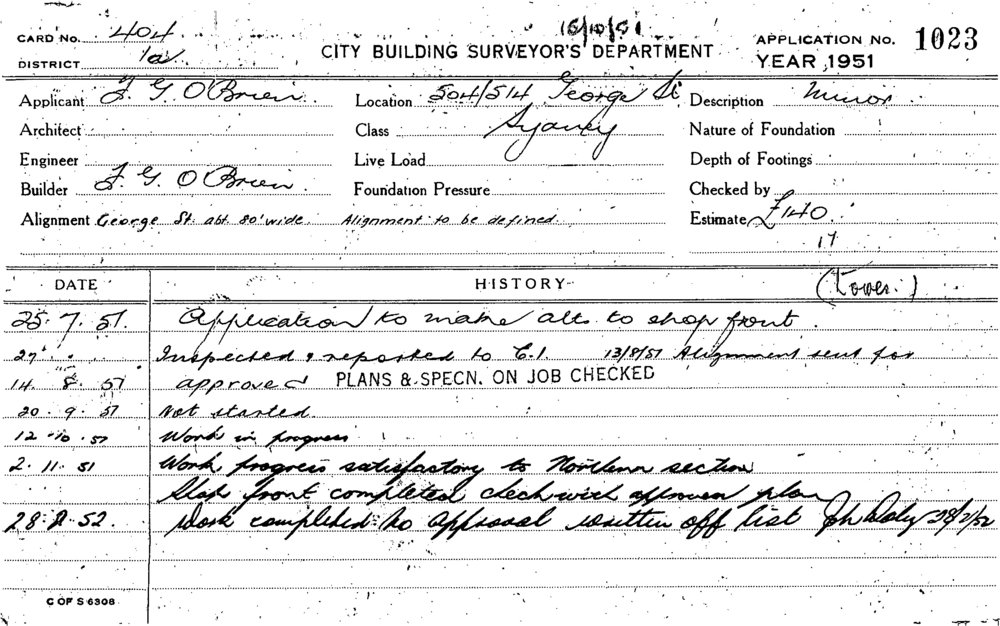 15/10/51
CARD No. 404 CITY BUILDING SURVEYOR'S DEPARTMENT APPLICATION No. 1023
DISTRICT 1a YEAR 1951
Applicant F. G. O'Brien Location 504/514 George St Description Minor
Architect Class Sydney Nature of Foundation
Engineer Live Load Depth of Footings
Builder F. G. O'Brien Foundation Pressure Checked by
Alignment George St. abt. 80' wide. Alignment to be defined Estimate £140
17
DATE HISTORY (Tower.)
25.7.51. Application to make alts to shop front.
27 " " Inspected & reported to C.I. 13/8/51 Alignment sent for
14. 8. 51 approved PLANS & SPECN. ON JOB CHECKED
20. 9. 51 Not started.
12.10.51 Work in progress
2.11.51 Work progress satisfactory to Northern section
Shop front completed check with approved plan
28.2.52. Work completed to approval written off list 28/2/52
C OF S 6308